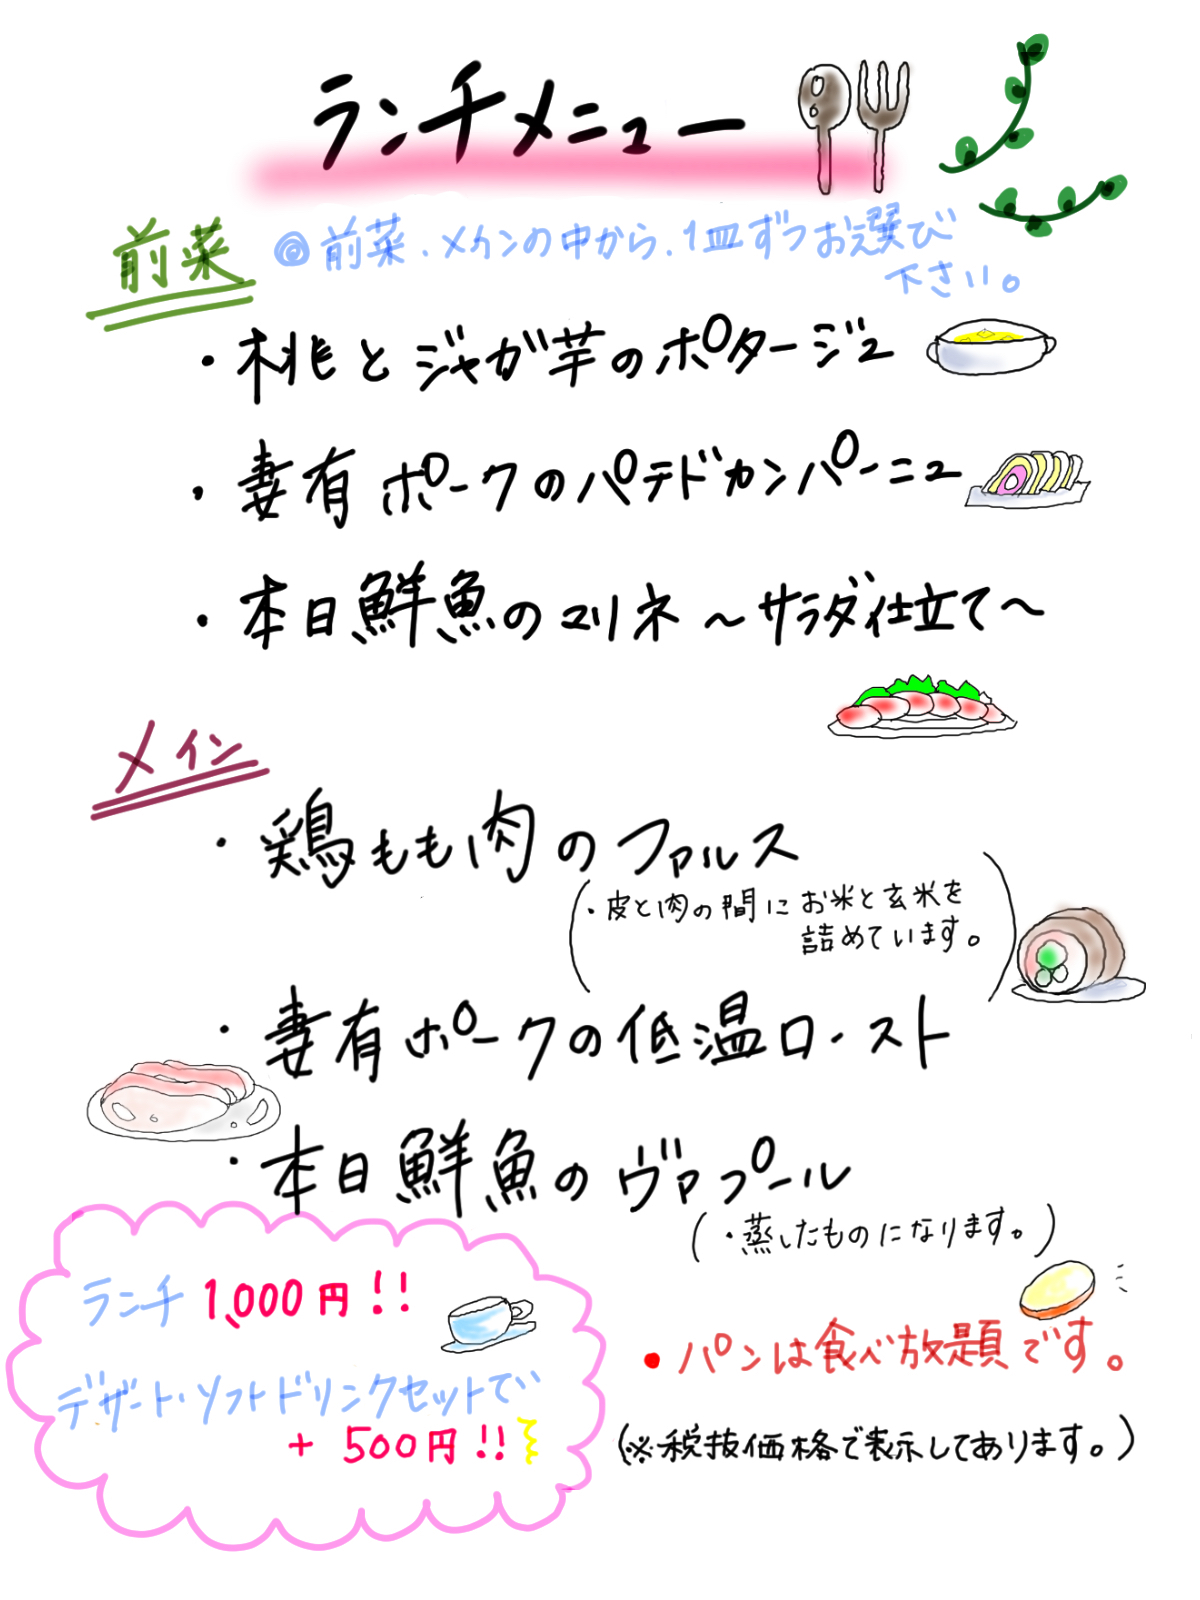 ランチメニュー
前菜
◎前菜・メインの中から、1皿ずつお選び
下さい。
・桃とジャガ芋のポタージュ
・妻有ポークのパテドカンパーニュ
・本日鮮魚のマリネ～サラダ仕立て～
メイン
・鶏もも肉のファルス
(・皮と肉の間にお米と玄米を
詰めています。)
・妻有ポークの低温ロースト
・本日鮮魚のヴァプール
(・蒸したものになります。)
ランチ1,000円!!
デザート・ソフトドリンクセットで
+500円!!
・パンは食べ放題です。
(※税抜価格で表示してあります。)